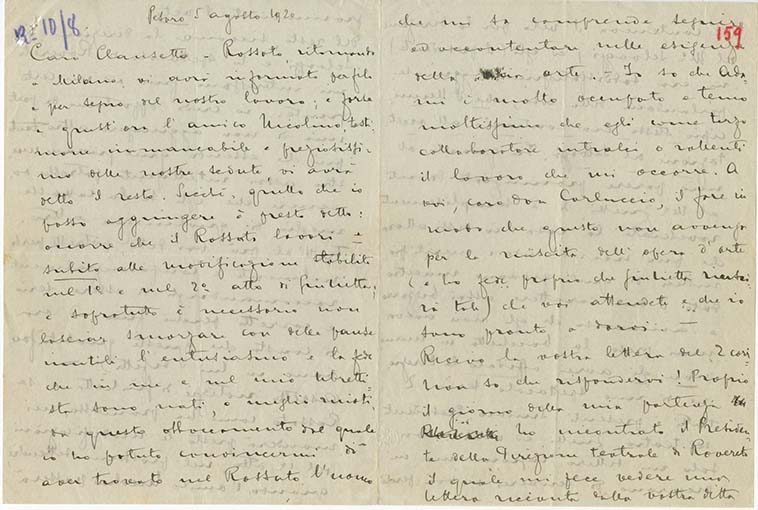 Pesaro 5 agosto 1920
R= 10/8
Caro Clausetti - Rossato ritornando
a Milano vi avrà informato per filo
e per segno del nostro lavoro; e forse
a quest'ora l'amico Nicolino, testi-
mone immancabile e preziosissi-
mo delle nostre sedute, vi avrà
detto il resto. Sicchè, quello che io
posso aggiungere è presto detto:
occorre che il Rossato lavori e
subito alle modificazioni stabilite
nel 1º e nel 2º atto di Giulietta;
e sopratutto è necessario non
lasciar smorzare con delle pause
inutili l'entusiasmo e la fede
che in me e nel mio libretti-
sta sono nati, o meglio
da questo affiatamento dal quale
io ho potuto convincermi di
aver trovato nel Rossato l'uomo
159
che mi sa comprendere seguire
ed accontentare nelle esigenze
della mia arte. - Io so che Ada-
mi è molto occupato e temo
moltissimo che egli come terzo
collaboratore intralci o rallenti
il lavoro che mi occorre. A
voi, caro don Carluccio, il fare in
modo che questo non avvenga
per la riuscita dell'opera d'arte
(e ho fede proprio che Giulietta riusci-
rà tale) che voi attendete e che io
sono pronto a darvi. -
Ricevo la vostra lettera del 2 corr.
non so che rispondervi! Proprio
il giorno della mia partenza
ho incontrato il Presiden-
te della Direzione teatrale di Rovereto
il quale mi fece vedere una
lettera ricevuta dalla vostra ditta